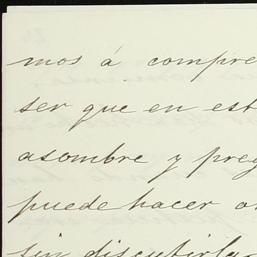 mos á compre
ser que en est
asombre y preg
puede hacer o
sin discutirla